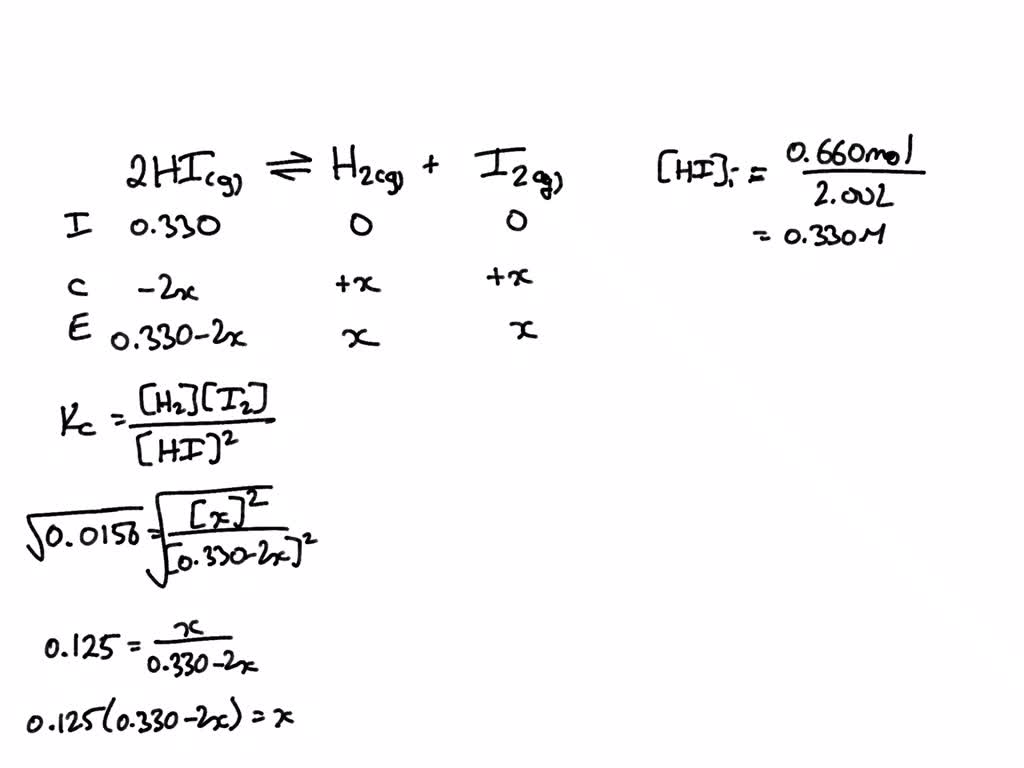 2HI(g) ⇌ H₂(g) + I₂(g)
[HI]ᵢ = 0.660mol / 2.00L
I 0.330 0 0
= 0.330M
C -2x +x +x
E 0.330-2x x x
Kc = [H₂][I₂] / [HI]²
√0.0156 = √([x]² / [0.330-2x]²)
0.125 = x / 0.330-2x
0.125(0.330-2x) = x